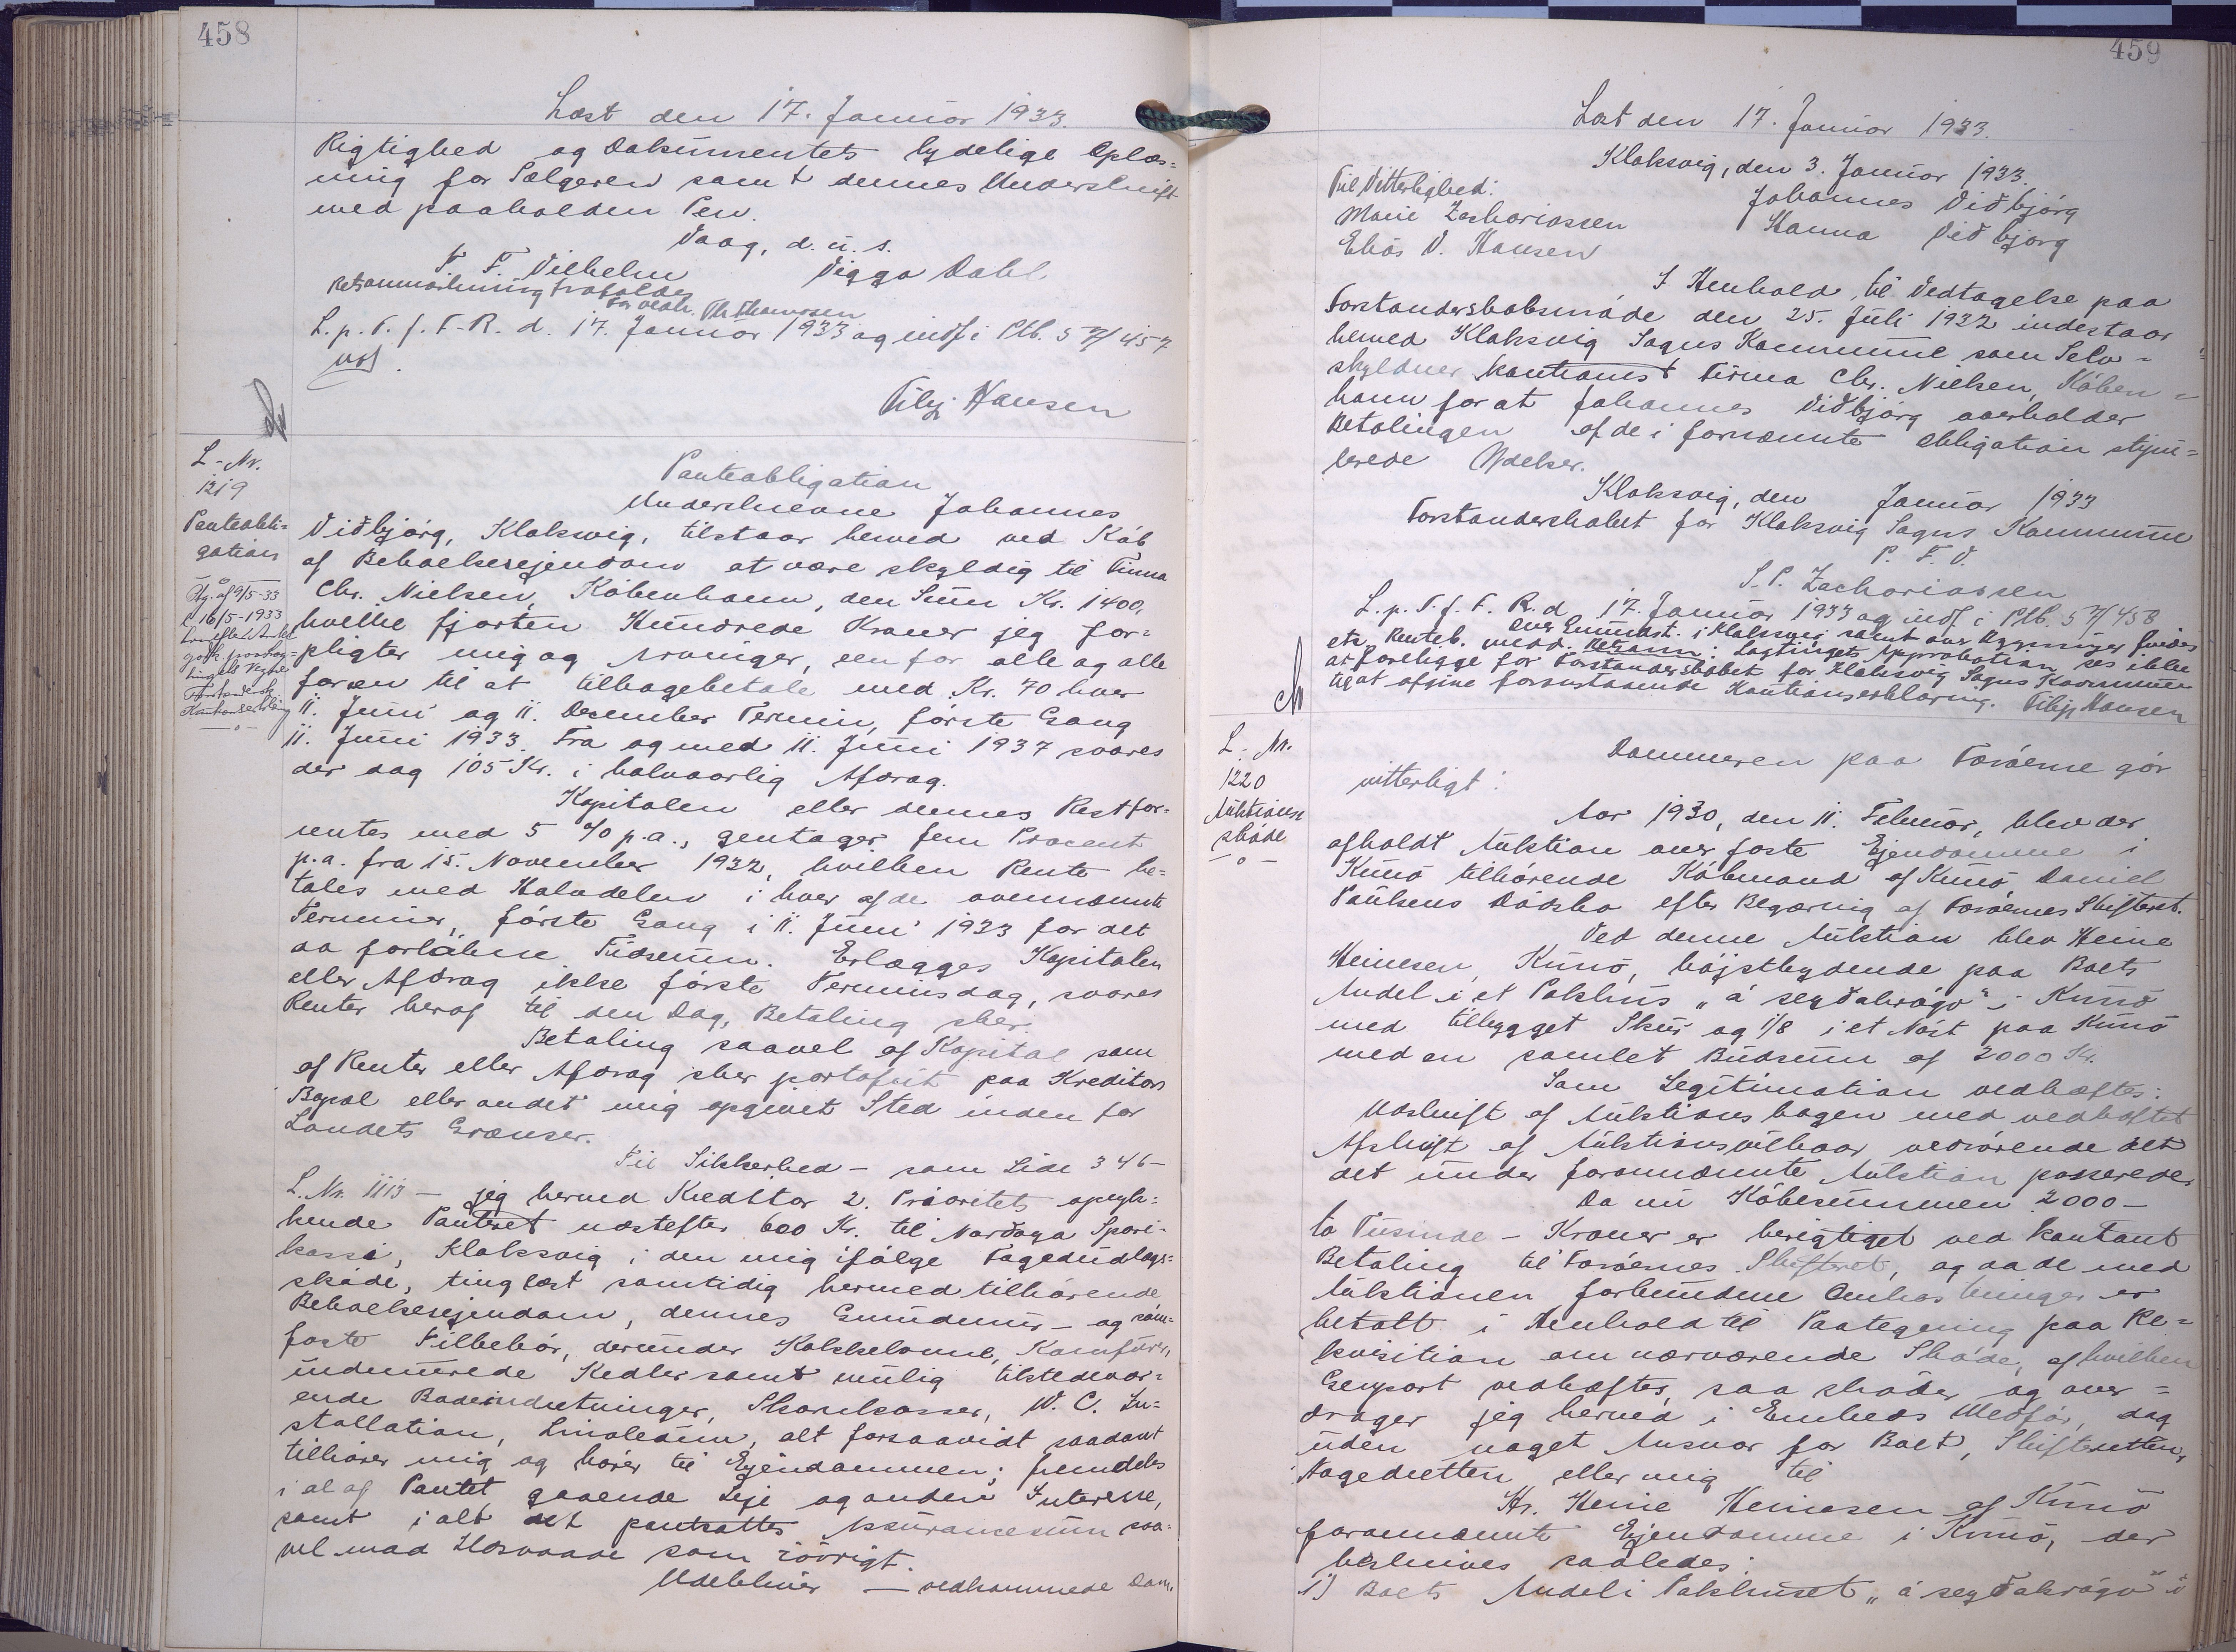 458
Læst den 17. Januar 1933.
Rigtighed og Dokumentets lydelige Oplæs=
ning for Sælgeren samt dennes Underskrift
med paaholden Pen.
Vaag, d. u. s.
F. F. Vilhelm Viggo Dahl
Retsanmærkning frafalder
Th Thomsen
L. p. T. f. F-R. d. 17. Januar 1933 og indf. i Ptb. S 7/457
Filip Hansen
L-Nr.
1219
Panteobli=
gation
Panteobligation
Underskrevne Johannes
Viðbjørg, Klaksvig, tilstaar herved ved Køb
af Beboelsesejendom at være skyldig til Firma
Chr. Nielsen, København, den Sum Kr. 1400,
hvilke fjorten Hundrede Kroner jeg for=
pligter mig og Arvinger, een for alle og alle
for een til at tilbagebetale med Kr. 70 hver
11. Juni og 11. December Termin, første Gang
11. Juni 1933. Fra og med 11. Juni 1937 svares
der dog 105 Kr. i halvaarlig Afdrag.
Kapitalen eller dennes Rest for=
rentes med 5 % p.a., gentager fem Procent
p.a. fra 15. November 1932, hvilken Rente be=
tales med Halvdelen i hver af de ovennævnte
Terminer, første Gang i 11. Juni 1933 for det
da forløbne Tidsrum. Erlægges Kapitalen
eller Afdrag ikke første Terminsdag, svares
Renter heraf til den Dag, Betaling sker.
Betaling saavel af Kapital som
af Renter eller Afdrag sker portofrit paa Kreditors
Bopæl eller andet mig opgivet Sted inden for
Landets Grænser.
Til Sikkerhed - som Side 346 -
L. Nr. 1113 - jeg herved Kreditor 2. Prioritets opryk=
kende Panteret næstefter 600 Kr. til Norðoya Spari-
kassi, Klaksvig i den mig ifølge Fogedudlægs=
skøde, tinglæst samtidig hermed tilhørende
Beboelsesejendom, dennes Grundmur- og søm=
faste Tilbehør, derunder Kakkelovne, Komfurer,
indmurede Kedler samt mulig tilstedevær=
ende Badeindretninger, Skorekasser, W. C. In=
stallation, Linoleum, alt forsaavidt saadant
tilhører mig og hører til Ejendommen; fremdeles
i al af Pantet gaaende Leje og anden Interesse,
samt i alt det pantsattes Assurancesum saa=
vel mod Ildsvaade som iøvrigt.
Udebliver — vedkommende Dom.
459
Læst den 17. Januar 1933.
Klaksvig, den 3. Januar 1933.
Til Vitterlighed: Johannes Viðbjørg
Marie Zachariassen Hanna Viðbjørg
Elias V. Hansen
I Henhold til Vedtagelse paa
Forstanderskabsmøde den 25. Juli 1932 indestaar
herved Klaksvig Sogns Kommune som Selv=
skyldner kautionist Firma Chr. Nielsen, Køben=
havn for at Johannes Viðbjørg overholder
Betalingen af de i fornævnte Obligation stipu=
lerede Ydelser.
Klaksvig, den Januar 1933
Forstanderskabet for Klaksvig Sogns Kommune
P. F. V.
S. P. Zachariassen
L. p. T. f. F. R. d. 17. Januar 1933 og indf. i Ptb. S 7/458
i Klaksvig samt over Bygninger findes
Lagtingets Approbation ses ikke
at foreligge for Forstanderskabet for Klaksvig Sogns Kommune
til at afgive foranstaaende Kautionserklæring. Filip Hansen
L. Nr.
1220
Auktions
skøde
Dommeren paa Færøerne gør
vitterligt:
Aar 1930, den 11. Februar, blev der
afholdt Auktion over faste Ejendomme i
Kunø tilhørende Købmand af Kunø Daniel
Paulsens Dødsbo efter Begæring af Færøernes Skifteret.
Ved denne Auktion blev Heine
Heinesen, Kunø, højstbydende paa Boets
Andel i et Pakhus „á seyðakrógv" i Kunø
med tilbygget Skur og 1/8 i et Nøst paa Kunø
med en samlet Budsum af 2000 Kr.
Som Legitimation vedhæftes:
Udskrift af Auktionsbogen med vedhæftet
Afskrift af Auktionsvilkaar vedrørende det
det under forannævnte Auktion passerede.
Da nu Købesummen 2000 -
to Tusinde - Kroner er berigtiget ved kontant
Betaling til Færøernes Skifteret, og da de med
Auktionen forbundne Omkostninger er
betalt i Henhold til Paategning paa Re=
kvisition om nærværende Skøde, af hvilken
Genpart vedhæftes, saa skøder og over=
drager jeg herved i Embeds Medfør, dog
uden noget Ansvar for Boet, Skifteretten,
Fogedretten eller mig til
Hr. Heine Heinesen af Kunø
forannævnte Ejendomme i Kunø, der
beskrives saaledes:
1) Boets Andel i Pakhuset „á seyðakrógv" i